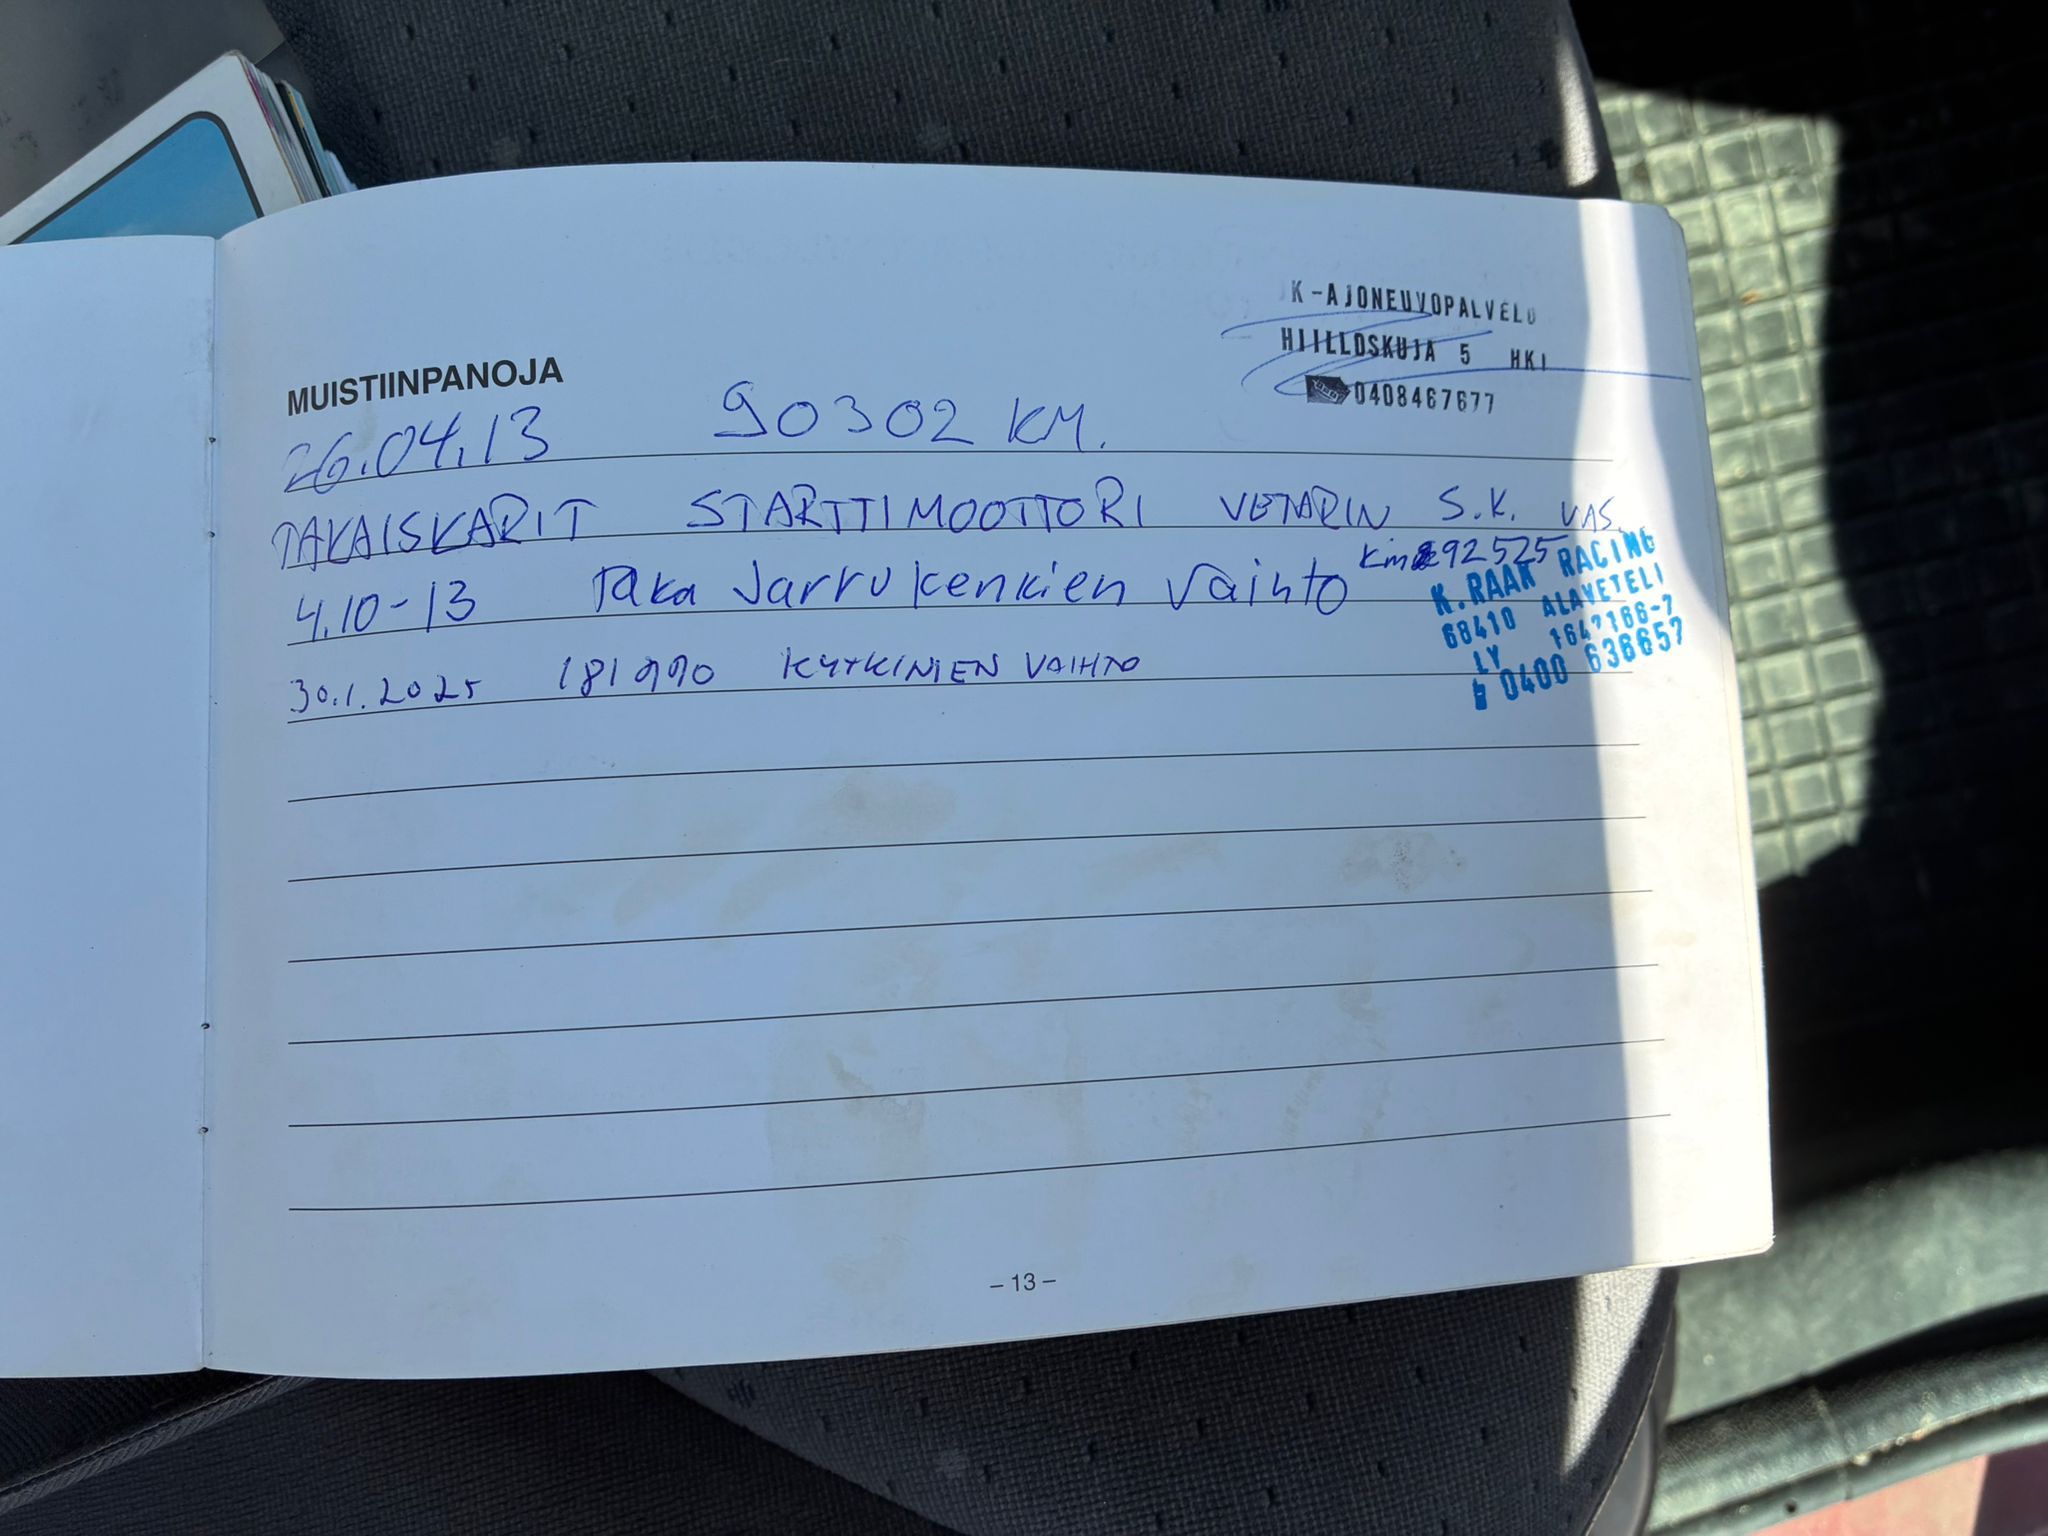 K-AJONEUVOPALVELU
HIILLOSKUJA 5 HKI
0408467677
MUISTIINPANOJA
26.04.13 90302 KM.
TAKAISKARIT STARTTIMOOTTORI VETARIN S.K. VAS.
4.10-13 Taka Jarrukenkien Vaihto Km 92525
K.RAAK RACING
68410 ALAVETELI
LY 1647166-7
0400 636657
30.1.2025 181990 KYTKINIEN VAIHTO
- 13 -